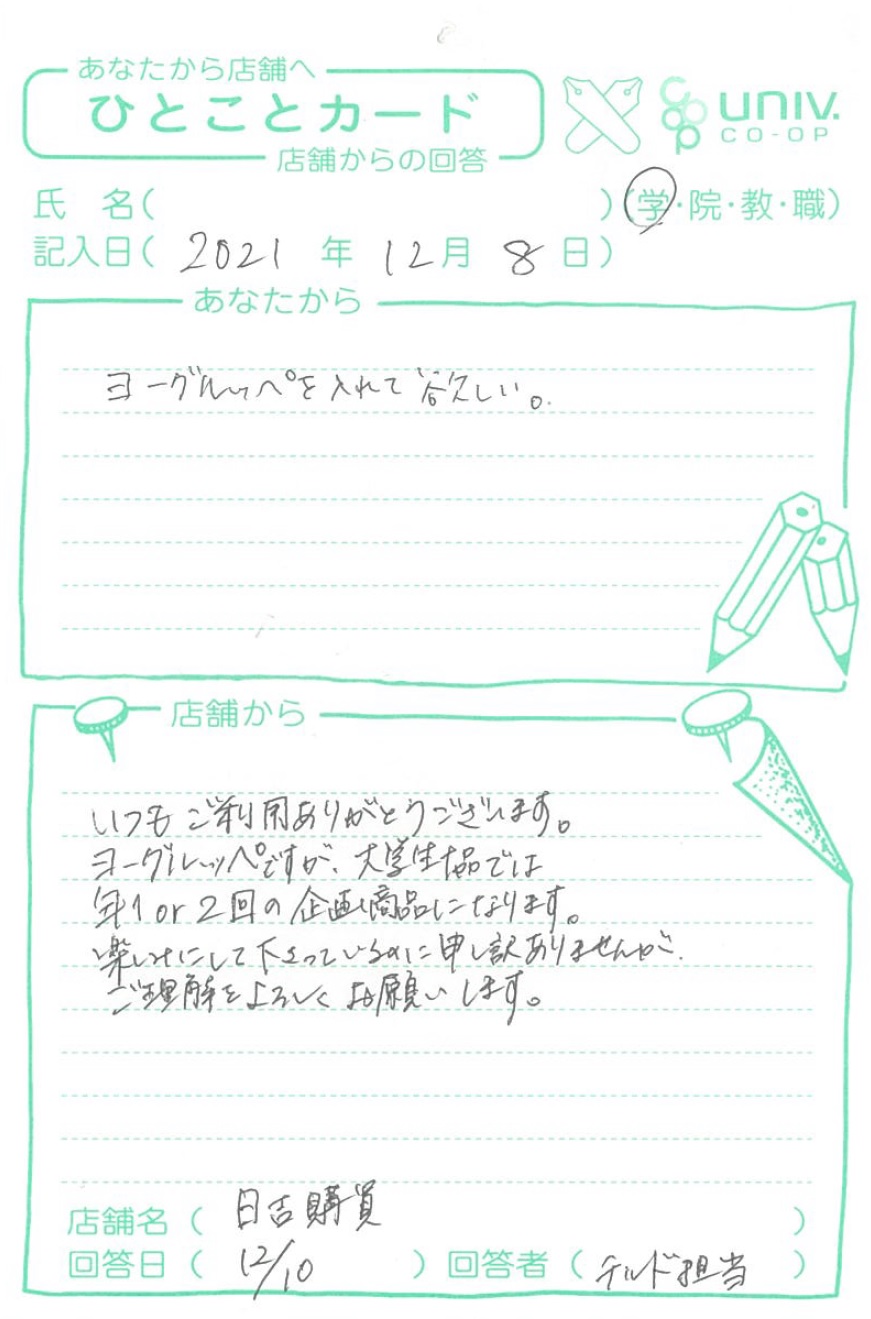 あなたから店舗へ
ひとことカード
店舗からの回答
univ.
CO-OP
氏 名( )(学・院・教・職)
記入日( 2021 年 12月 8 日)
あなたから
ヨーグルッペを入れて欲しい。
店舗から
いつもご利用ありがとうございます。
ヨーグルッペですが、大学生協では
年1or2回の企画商品になります。
楽しみにして下さっているのに申し訳ありませんが、
ご理解をよろしくお願いします。
店舗名( 日吉購買 )
回答日( 12/10 ) 回答者( チルド担当 )